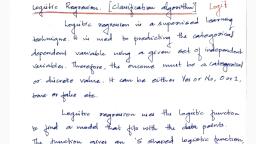 Logistic Regression. [Classification algorithm] Logit
Logistic regression is a supervised learning
technique. It is used to predicting the categorical
dependent variable using a given set of independent
variables. Therefore, the outcome must be a categorical
or discrete value. It can be either Yes or No, 0 or 1,
true or false etc.
Logistic regression uses the logistic function
to find a model that fits with the data points.
The function gives an 'S' shaped logistic function,